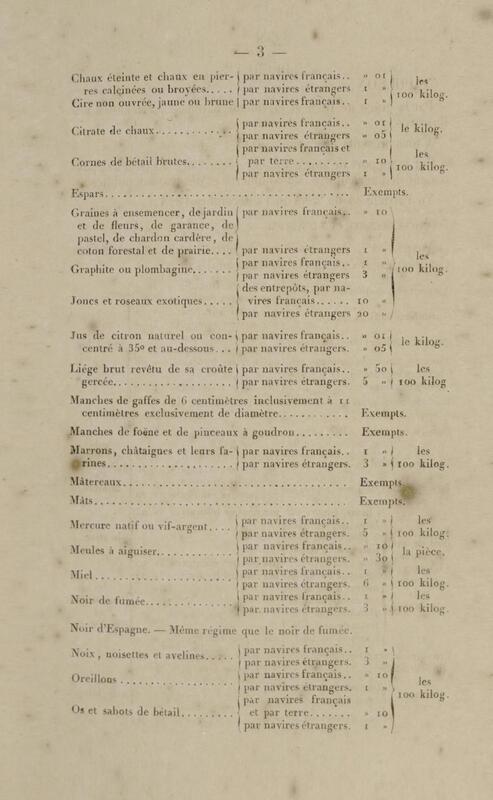 — 3 —
Chaux éteinte et chaux en pier- par navires français.. » 01 les
res calcinées ou broyées..... par navires étrangers 1 » 100 kilog.
Cire non ouvrée, jaune ou brune par navires français.. 1 »
Citrate de chaux........... par navires français.. » 01 le kilog.
par navires étrangers » 05
Cornes de bétail brutes........ par navires français et les
par terre......... » 10 100 kilog.
par navires étrangers 1 »
Espars................................................ Exempts.
Graines à ensemencer, de jardin par navires français.. » 10
et de fleurs, de garance, de
pastel, de chardon cardère, de
coton forestal et de prairie.... par navires étrangers 1 » les
Graphite ou plombagine....... par navires français.. 1 » 100 kilog.
par navires étrangers 3 »
Joncs et roseaux exotiques..... des entrepôts, par na-
vires français...... 10 »
par navires étrangers 20 »
Jus de citron naturel ou con- par navires français.. » 01 le kilog.
centré à 35° et au-dessous... par navires étrangers. » 05
Liége brut revêtu de sa croûte par navires français.. » 50 les
gercée.................... par navires étrangers. 5 » 100 kilog
Manches de gaffes de 6 centimètres inclusivement à 11
centimètres exclusivement de diamètre............ Exempts.
Manches de foëne et de pinceaux à goudron......... Exempts.
Marrons, châtaignes et leurs fa- par navires français.. 1 » les
rines..................... par navires étrangers. 3 » 100 kilog.
Mâtereaux............................................ Exempts.
Mâts................................................. Exempts.
Mercure natif ou vif-argent.... par navires français.. 1 » les
par navires étrangers. 5 » 100 kilog.
Meules à aiguiser............. par navires français.. » 10 la pièce.
par navires étrangers. » 30
Miel......................... par navires français.. 1 » les
par navires étrangers. 6 » 100 kilog.
Noir de fumée................ par navires français.. 1 » les
par navires étrangers. 3 » 100 kilog.
Noir d'Espagne. — Même régime que le noir de fumée.
Noix, noisettes et avelines..... par navires français.. 1 »
par navires étrangers. 3 »
Oreillons.................... par navires français.. » 10 les
par navires étrangers. 1 » 100 kilog.
Os et sabots de bétail......... par navires français
et par terre....... » 10
par navires étrangers. 1 »